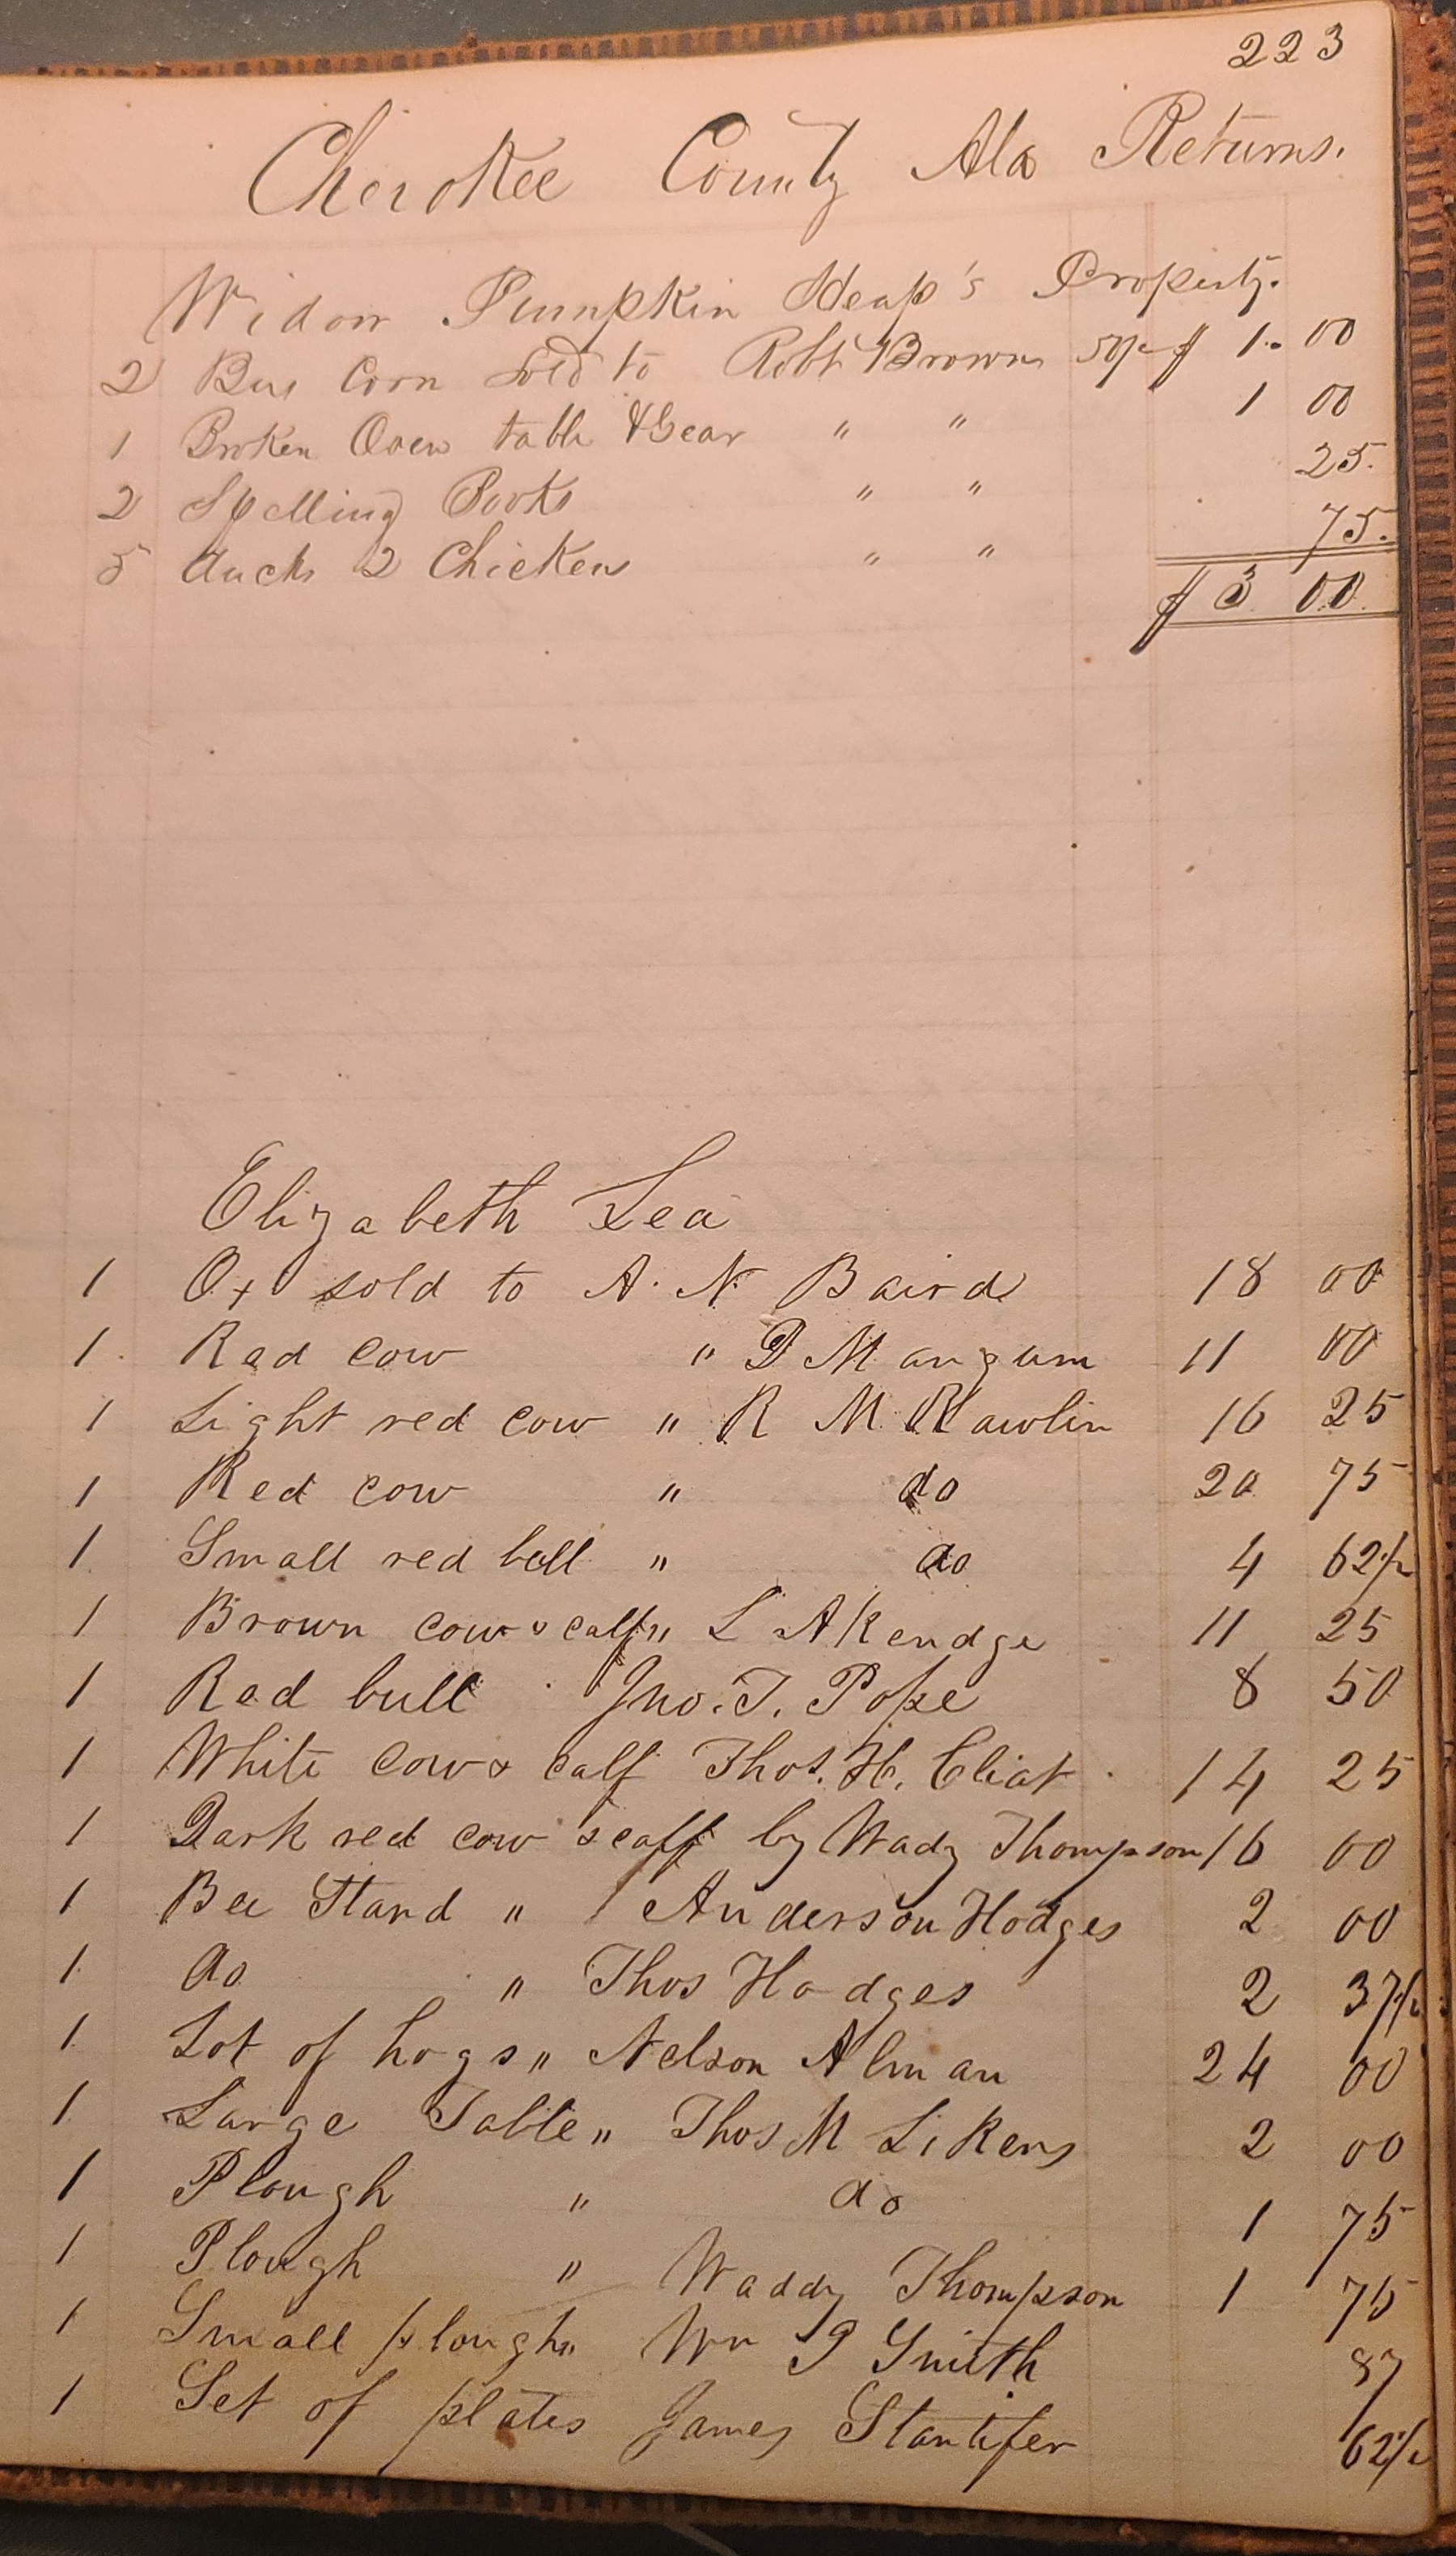 223
Cherokee County Ala Returns.
Widow Pumpkin Heap's Property.
2 Bus Corn Sold to Robt Brown 50¢ $ 1.00
1 Broken Oven table & Gear " " 1 00
2 Spelling Books " " 25.
5 Ducks 2 Chickens " " 75.
$ 3 00
Elizabeth Lea
1 Ox sold to A. N. Baird 18 00
1. Red cow " D Mangum 11 00
1 Light red cow " R M Rawlin 16 25
1 Red cow " do 20 75
1. Small red bull " do 4 62½
1 Brown cow & calf " L Akendge 11 25
1 Red bull Jno. T. Pope 8 50
1 White cow & calf Thos. H. Cliat 14 25
1 Dark red cow & calf by Wady Thompson 16 00
1 Bee Stand " Anderson Hodges 2 00
1. do " Thos Hodges 2 37½
1. Lot of hogs " Nelson Alman 24 00
1. Large Table " Thos M Likens 2 00
1 Plough " do 1 75
1 Plough " Waddy Thompson 1 75
1 Small plough " Wm P Smith 87
1 Set of plates James Stantifer 62½